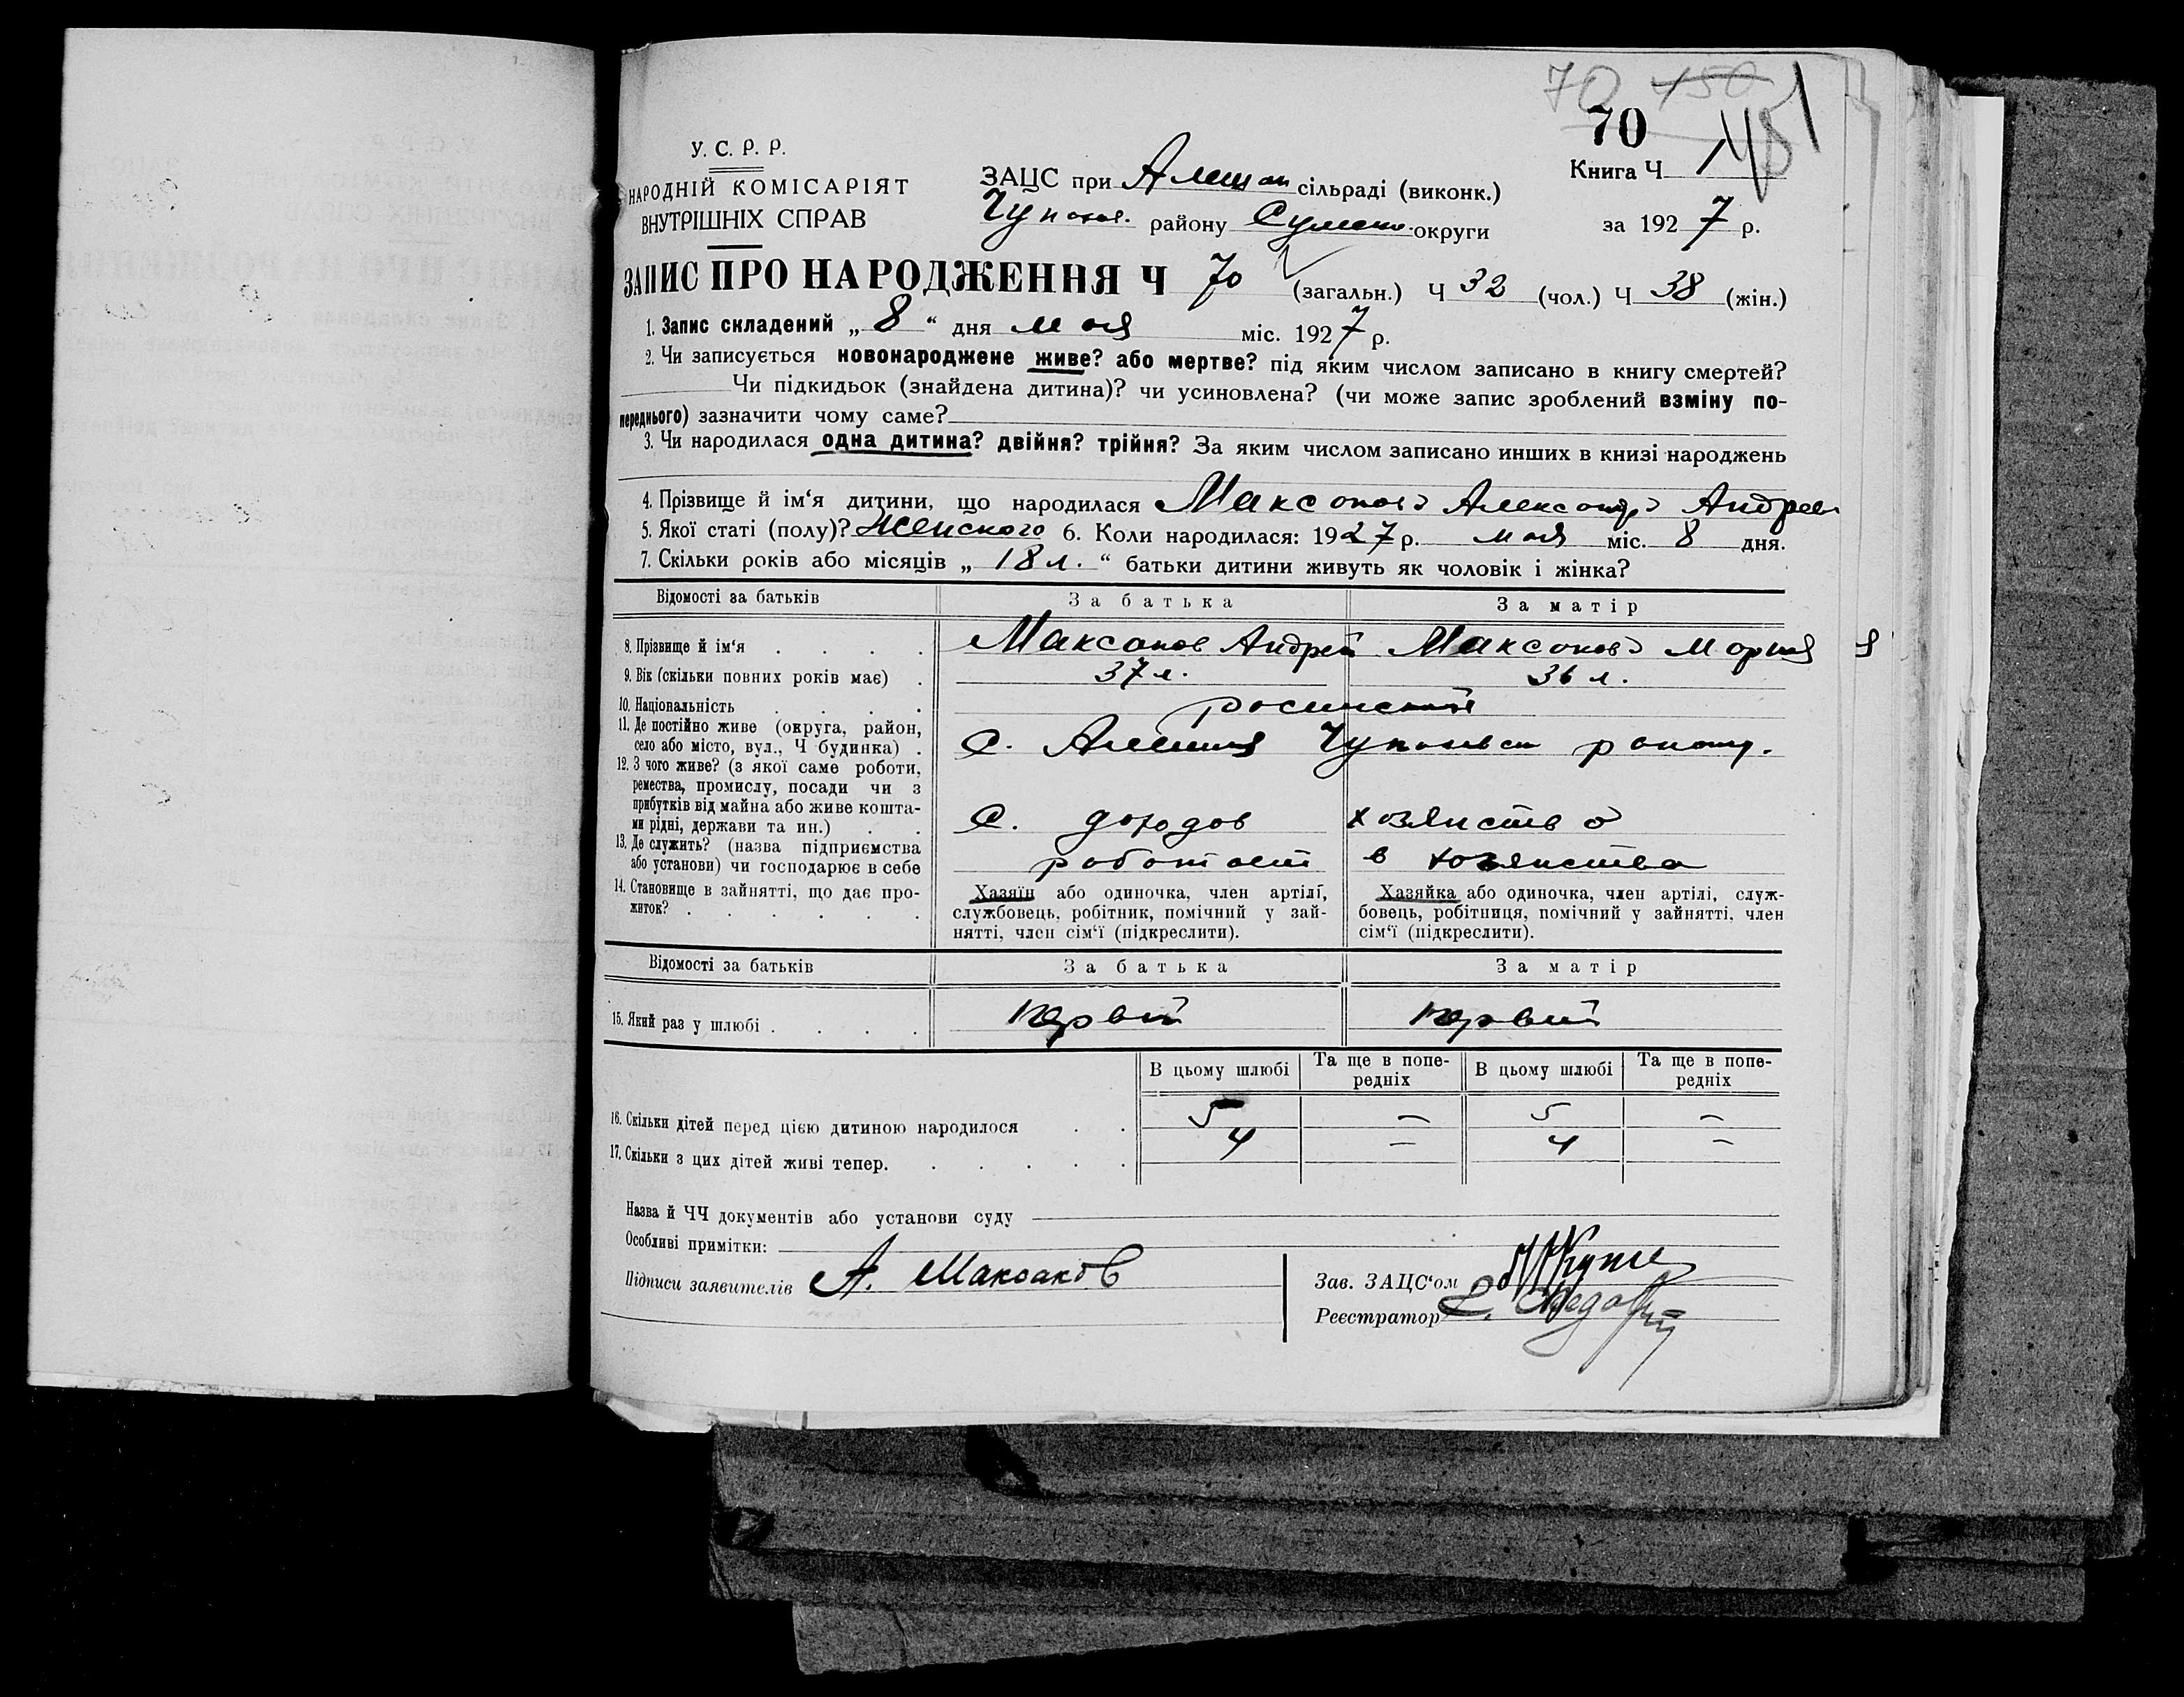 70 450
70 451
У. С. Р. Р.
НАРОДНІЙ КОМІСАРІЯТ
ВНУТРІШНІХ СПРАВ
ЗАЦС при Алешан сільраді (виконк.)
Чупахов. району Сумской округи
Книга Ч 1
за 1927 р.
ЗАПИС ПРО НАРОДЖЕННЯ Ч 70 (загальн.) Ч 32 (чол.) Ч 38 (жін.)
1. Запис складений „ 8 “ дня мая міс. 1927 р.
2. Чи записується новонароджене живе? або мертве? під яким числом записано в книгу смертей?
Чи підкидьок (знайдена дитина)? чи усиновлена? (чи може запис зроблений взміну по-
переднього) зазначити чому саме?
3. Чи народилася одна дитина? двійня? трійня? За яким числом записано инших в книзі народжень
4. Прізвище й ім‘я дитини, що народилася Максакова Александра Андреев
5. Якої статі (полу)? Женского 6. Коли народилася: 1927 р. мая міс. 8 дня.
7. Скільки років або місяців „ 18 л. “ батьки дитини живуть як чоловік і жінка?
Відомості за батьків За батька За матір
8. Прізвище й ім‘я Максаков Андрей Максакова Мария
9. Вік (скільки повних років має) 37 л. 36 л.
10. Національність
11. Де постійно живе (округа, район,
село або місто, вул., Ч будинка) С. Алешня Чупаховск
12. З чого живе? (з якої саме роботи,
ремества, промислу, посади чи з
прибутків від майна або живе кошта-
ми рідні, держави та ин.) С. доходов хозяйства
13. Де служить? (назва підприємства
або установи) чи господарює в себе работает в хозяйства
14. Становище в зайнятті, що дає про-
житок?
Хазяїн або одиночка, член артілі,
службовець, робітник, помічний у зай-
нятті, член сім‘ї (підкреслити).
Хазяйка або одиночка, член артілі, служ-
бовець, робітниця, помічний у зайнятті, член
сім‘ї (підкреслити).
Відомості за батьків За батька За матір
15. Який раз у шлюбі первий первий
В цьому шлюбі Та ще в попе-
редніх В цьому шлюбі Та ще в попе-
редніх
16. Скільки дітей перед цією дитиною народилося 5 — 5 —
17. Скільки з цих дітей живі тепер. 4 — 4 —
Назва й ЧЧ документів або установи суду
Особливі примітки:
Підписи заявителів А. Максаков
Зав. ЗАЦС‘ом
Реєстратор